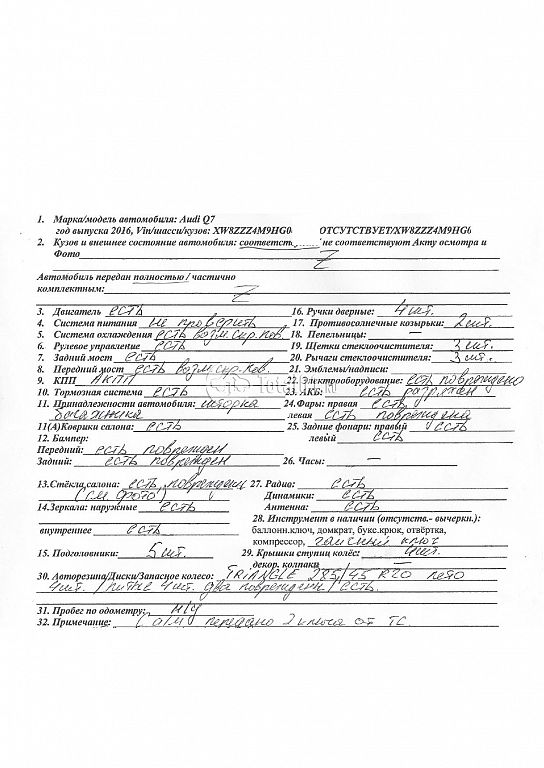 1. Марка/модель автомобиля: Audi Q7
год выпуска 2016, Vin/шасси/кузов: XW8ZZZ4M9HG0 ОТСУТСТВУЕТ/XW8ZZZ4M9HG6
2. Кузов и внешнее состояние автомобиля: соответств не соответствуют Акту осмотра и
Фото Z
Автомобиль передан полностью / частично
комплектным: Z
3. Двигатель есть 16. Ручки дверные: 4 шт.
4. Система питания не проверить 17. Противосолнечные козырьки: 2 шт.
5. Система охлаждения есть возм. скр. пов. 18. Пепельницы: —
6. Рулевое управление есть 19. Щетки стеклоочистителя: 3 шт.
7. Задний мост есть 20. Рычаги стеклоочистителя: 3 шт.
8. Передний мост есть возм скр. пов. 21. Эмблемы/надписи:
9. КПП АКПП 22. Электрооборудование: есть повреждено
10. Тормозная система есть 23. АКБ: есть разряжен
11. Принадлежности автомобиля: шторка 24. Фары: правая есть
багажника левая есть повреждена
11(А)Коврики салона: есть 25. Задние фонари: правый есть
12. Бампер: левый есть
Передний: есть поврежден
Задний: есть поврежден 26. Часы: —
13.Стёкла салона: есть, поврежден 27. Радио: есть
(см фото) Динамики: есть
14.Зеркала: наружные есть Антенна: есть
28. Инструмент в наличии (отсутств.- вычеркн.):
внутреннее есть баллонн.ключ, домкрат, букс.крюк, отвёртка,
компрессор, гаечный ключ
15. Подголовники: 5 шт. 29. Крышки ступиц колёс: 4 шт.
декор. колпаки —
30. Авторезина/Диски/Запасное колесо: TRIANGLE 285/45 R20 лето
4 шт. / литые 4 шт. два поврежден / есть.
31. Пробег по одометру: н/у
32. Примечание: С а/м передано 2 ключа от ТС.